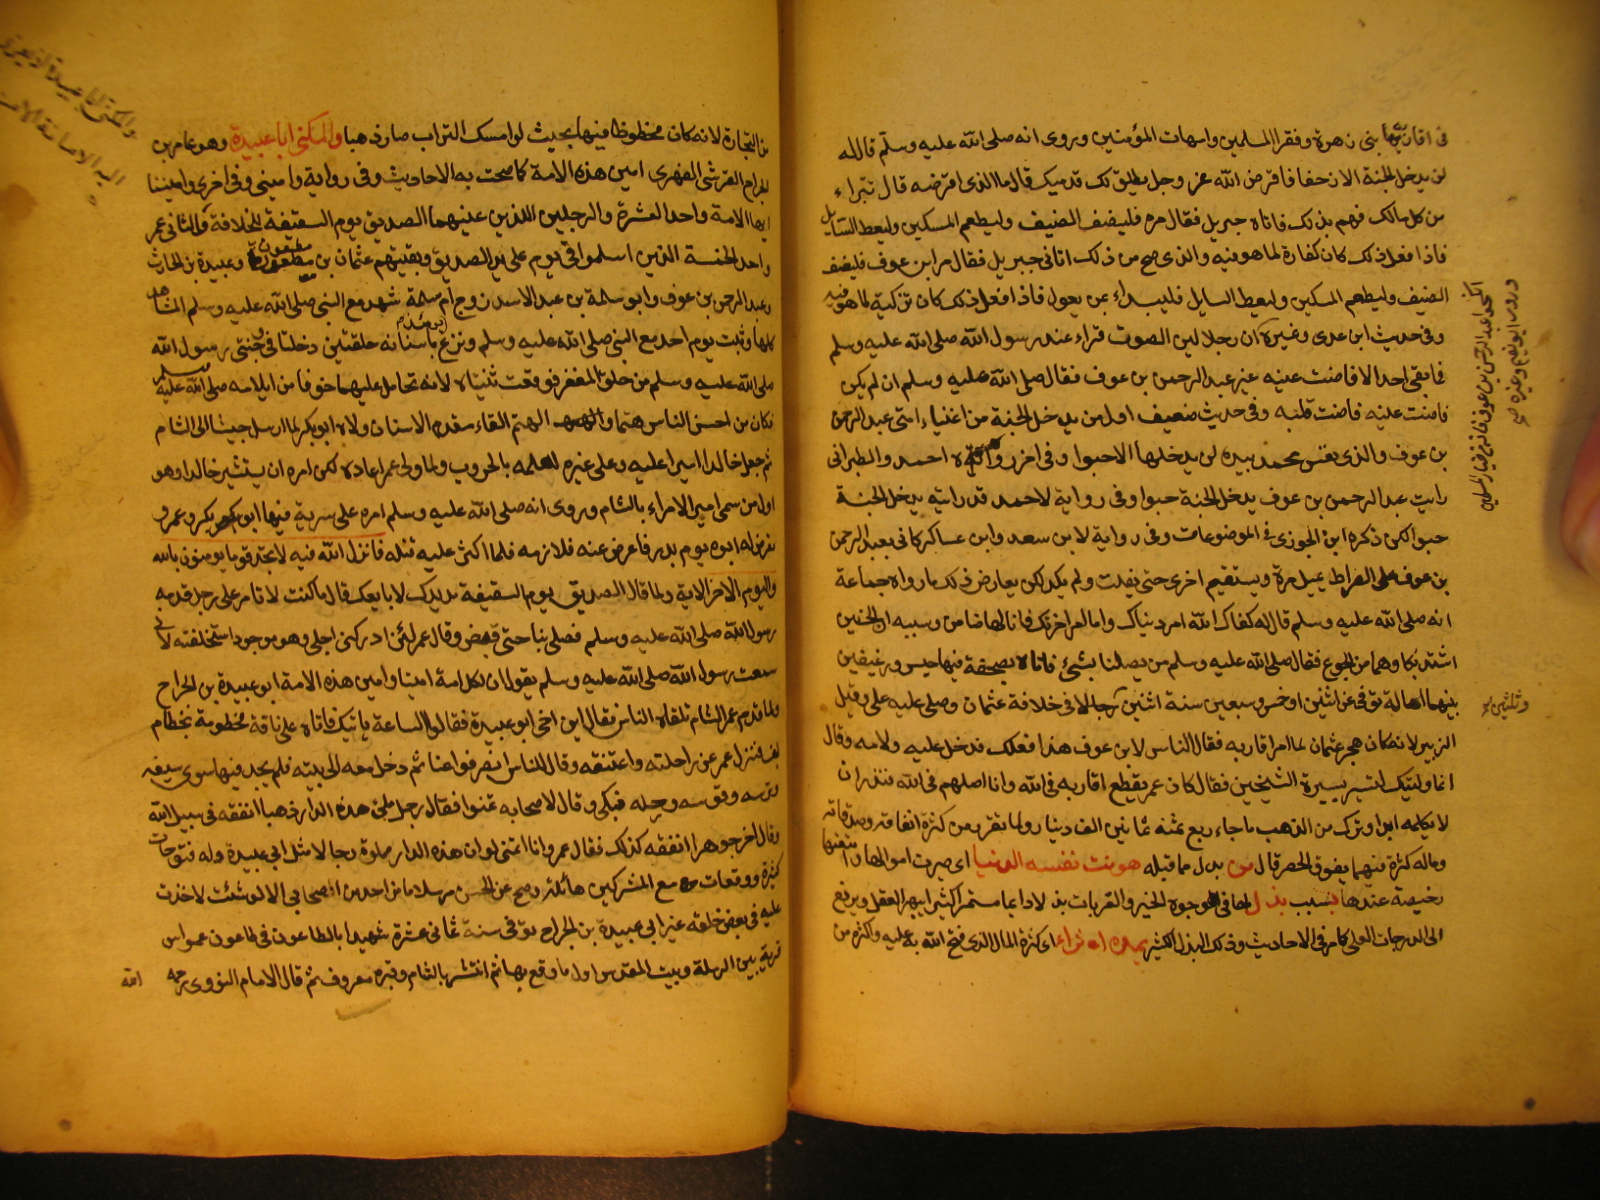 في اقاربها بني زهرة وفقرا المسلمين وامهات المؤمنين وروى انه صلى الله عليه وسلم قال له
لن يدخل الجنة الا زحفا فاقرض الله عز وجل يطلق لك قدميك قال ما الذي اقرضه قال تتبراء
من كل مالك فهم بذلك فاتاه جبريل فقال مره فليضف الضيف وليطعم المسكين وليعط السايل
فاذا فعل ذلك كان كفارة لما هو فيه والذي صح من ذلك اتاني جبريل فقال مر ابن عوف فليضف
الضيف وليطعم المسكين وليعط السايل فليبداء بمن يعول فاذا فعل ذلك كان تزكية لما هو فيه
وفي حديث ابن عدي وغيره ان رجلا لين الصوت قراء عند رسول الله صلى الله عليه وسلم
فما بقي احد الا فاضت عينه غير عبد الرحمن بن عوف فقال صلى الله عليه وسلم ان لم يكن
فاضت عليه فاضت قلبه وفي حديث ضعيف اول من يدخل الجنة من اغنياء امتي عبد الرحمن
بن عوف والذي نفس محمد بيده لن يدخلها الا حبوا وفي اخر احمد والطبراني
رايت عبد الرحمن بن عوف يدخل الجنة حبوا وفي رواية لاحمد قد رايته يدخل الجنة
حبوا لكن ذكره ابن الجوزي في الموضوعات وفي رواية لابن سعد وابن عساكر كاني بعبد الرحمن
بن عوف على الصراط يميل مرة ويستقيم اخرى حتى يفلت ولم يكد لكن يعارض ذلك ما رواه جماعة
انه صلى الله عليه وسلم قال له كفاك الله امر دنياك واما امر اخرتك فانا لها ضامن وسببه ان الحسنين
اشتد بكاوهما من الجوع فقال صلى الله عليه وسلم من يصلنا بشئ فاتاه بصحفة فيها حيس ورغيفين
بينهما اهالة توفي عن اثنين او خمس وسبعين سنة اثنين في خلافة عثمان وصلى عليه علي وقيل
الزبير لانه كان هجر عثمان لما امر اقاربه فقال الناس لابن عوف هذا فعلك فدخل عليه ولامه وقال
انما وليتك لتسير بسيرة الشيخين فقال كان عمر يقطع اقاربه في الله وانا اصلهم في الله فنذر ان
لا يكلمه ابدا وترك من الذهب ما جاء ربع ثمنه ثمانين الف دينار ولما تقرر من كثرة انفاقه وصدقاته
وماله كثرة فيهما يفوق الحصر قال من بدل مما قبله هونت نفسه الدنيا اي صيرت اموالها وامتعتها
رخيصة عندها بسبب بذل لها في وجوه الخير والقربات بذلا دايما مستمرا كثيرا يبهر العقل ويرفع
الى الدرجات العلى كما مر في الاحاديث وذلك البذل الكثير يمده اثراء اي كثرة المال الذي فتح الله به عليه واكثره من
وروى ابو نعيم وغيره
وثلثين
من التجارة لانه كان محظوظا فيها بحيث لو امسك التراب صار ذهبا والمكنى ابا عبيدة وهو عامر بن
الجراح القرشي الفهري امين هذه الامة كما صحت به الاحاديث وفي رواية واميني وفي اخرى واميننا
ايها الامة واحد العشرة والرجلين اللذين عينهما الصديق يوم السقيفة للخلافة والثاني عمر
واحد الخمسة الذين اسلموا في يوم على يد الصديق وبقيتهم عثمان بن مظعون وعبيدة بن الحارث
وعبد الرحمن بن عوف وابو سلمة بن عبد الاسد زوج ام سلمة شهد مع النبي صلى الله عليه وسلم المشاهد
كلها وثبت يوم احد مع النبي صلى الله عليه وسلم ونزع باسنانه حلقتين دخلتا في وجنتي رسول الله
صلى الله عليه وسلم من حلق المغفر فوقعت ثنيتاه لانه تحامل عليهما خوفا من ايلامه صلى الله عليه وسلم
فكان من احسن الناس هتما الهتم القاء مقدم الاسنان ولاه ابو بكر لما ارسل جيشا الى الشام
ثم جعل خالدا اميرا عليه وعلى غيره لعلمه بالحروب ولما ولي عمر اعاده لكن امره ان يستشير خالدا وهو
اول من سمي امير الامراء بالشام وروى انه صلى الله عليه وسلم امره على سرية فيها ابو بكر وعمر و
تعرض له ابوه يوم بدر فاعرض عنه فلازمه فلما اكثر عليه قتله فانزل الله فيه لا تجد قوما يومنون بالله
واليوم الاخر الاية ولما قال الصديق يوم السقيفة مد يدك لابايعك قال ما كنت لاتامر على رجل قدمه
رسول الله صلى الله عليه وسلم فصلى بنا حتى قبض وقال عمر لئن ادركني اجلي وهو موجود استخلفته لاني
سمعت رسول الله صلى الله عليه وسلم يقول ان لكل امة امينا وامين هذه الامة ابو عبيدة بن الجراح
ولما قدم عمر الشام تلقاه الناس فقال اين اخي ابو عبيدة فقالوا الساعة ياتيك فاتاه على ناقة مخطومة بخطام
ليف فنزل عمر عن راحلته واعتنقه وقال للناس انصرفوا عنا ثم دخل معه الى بيته فلم يجد فيها سوى سيفه
وترسه وقوسه ورحله فبكى وقال لاصحابه تمنوا فقال رجل ملئ هذه الدار ذهبا انفقه في سبيل الله
وقال اخر جوهرا انفقه كذلك فقال عمر وانا اتمنى لو ان هذه الدار مملوة رجالا مثل ابي عبيدة وله فتوحات
كثيرة ووقعات مع المشركين هائلة وصح عن الحسن مرسلا ما من احد من اصحابي الا لو شئت لاخذت
عليه في بعض خلقه غير ابي عبيدة بن الجراح توفي سنة ثماني عشرة شهيدا بالطاعون في طاعون عمواس
قرية بين الرملة وبيت المقدس اول ما وقع بها ثم انتشر بالشام وقبره معروف ثم قال الامام النووي رحمه
الله